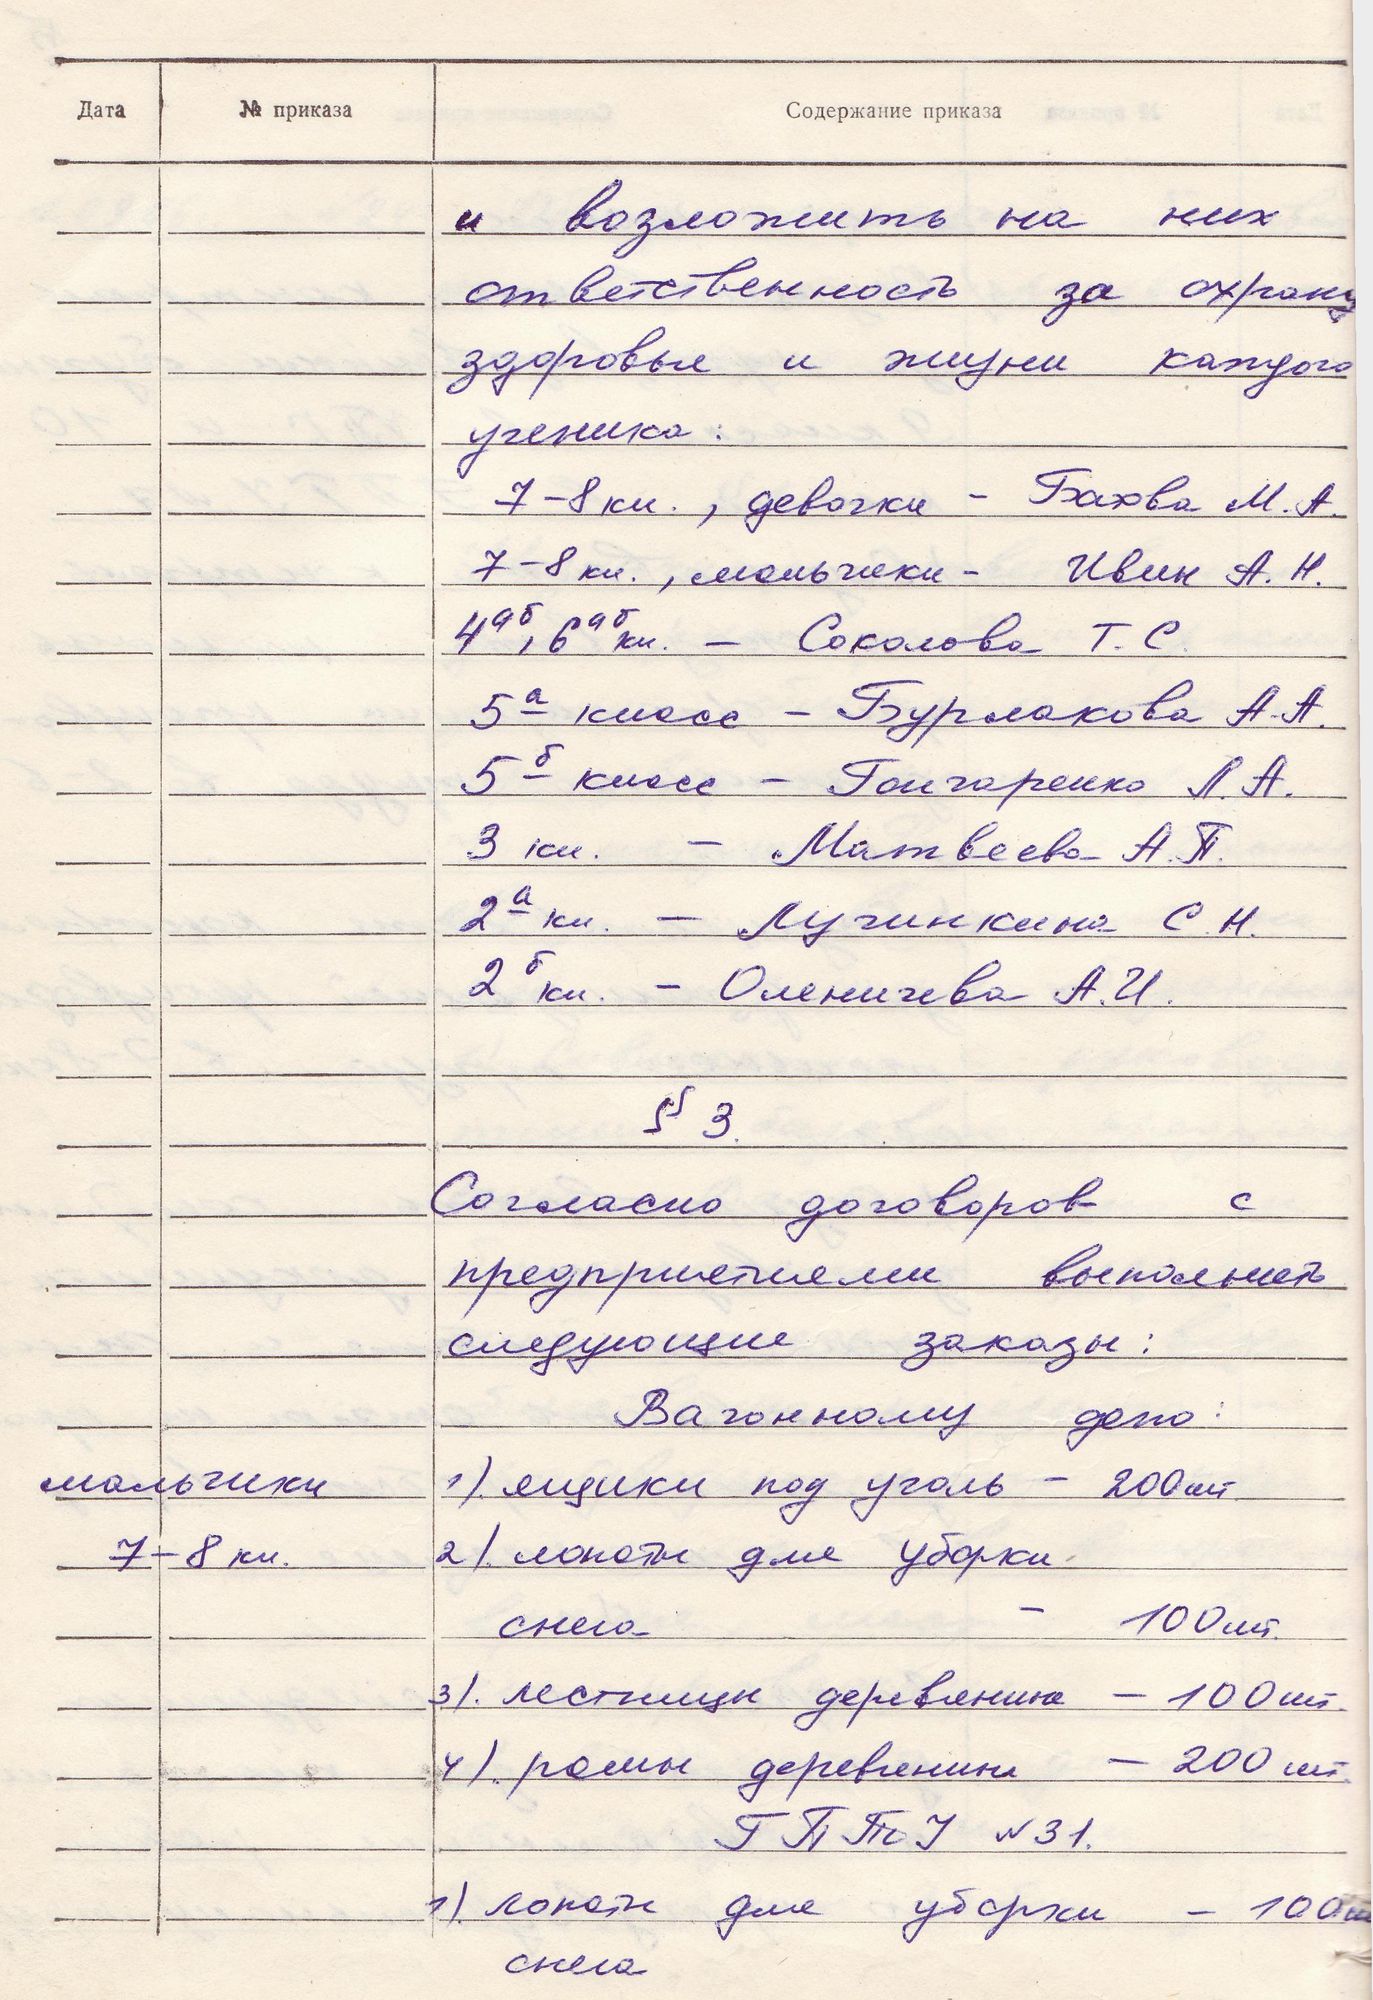 Дата № приказа Содержание приказа
и возложить на них
ответственность за охрану
здоровья и жизни каждого
ученика:
7-8 кл., девочки - Бахова М.А.
7-8 кл., мальчики - Ивин А.Н.
4аб, 6аб кл. - Соколова Т.С.
5а класс - Бурлакова А.А.
5б класс - Гончаренко Л.А.
3 кл. - Матвеева А.П.
2а кл. - Лучинкина С.Н.
2б кл. - Оленичева А.И.
§ 3.
Согласно договоров с
предприятиями выполнить
следующие заказы:
Вагонному депо:
мальчики 1). ящики под уголь - 200 шт.
7-8 кл. 2). лопаты для уборки
снега - 100 шт.
3). лестницы деревянные - 100 шт.
4). рамы деревянные - 200 шт.
ГППТоУ №31.
1). лопаты для уборки - 100 шт
снега